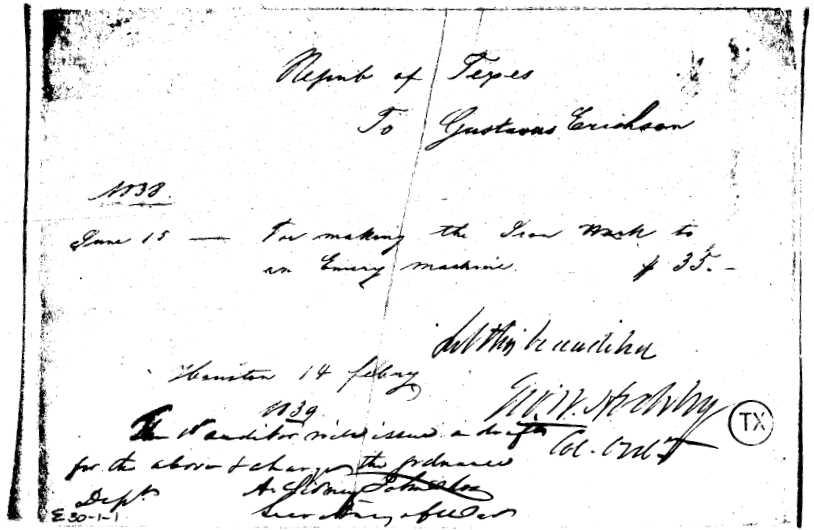 Repub of Texas
To Gustavus Erichson
1838.
June 15 — For making the Iron Work to
an Emery machine. $ 35.-
Let this be audited
Houston 14 febry
1839
Geo. W. Hockley
Col. Ord
TX
The 1st auditor will issue a draft
for the above & charge the ordnance
Dept
A. Sidney Johnston
Secretary of War
E 30-1-1